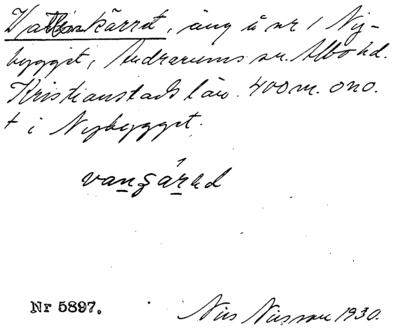 Vattenkärret, äng å nr 1 Ny-
bygget, Andrarums sn. Albo hd.
Kristianstads län. 400 m. ono.
† i Nybygget.
vanʒárəd
Nr 5897.
Nils Nilsson 1930.